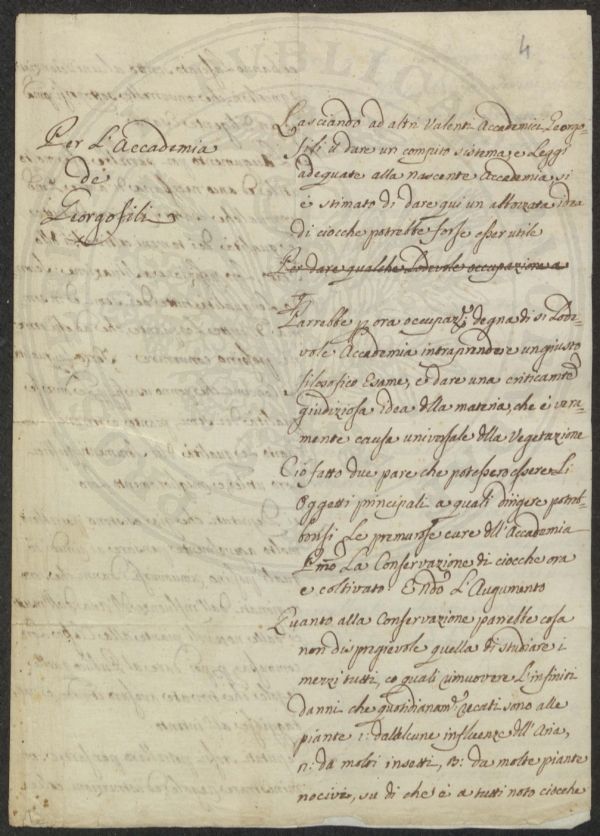 4
Per L'Accademia
de
Giorgofili
Lasciando ad altri Valenti Accademici Georgo-
fili il dare un compito sistema, e Leggi
adeguate alla nascente Accademia, si
è stimato di dare qui un abbozzata idea
di ciocche potrebbe forse esser utile
Per dare qualche Lodevole occupazione a
Parrebbe p ora occupaz.e degna di sì Lode-
vole Accademia intraprendere un giusto
filosofico Esame, e dare una criticamte
giudiziosa idea dlla materia, che è vera-
mente causa universale dlla Vegetazione
Cio fatto due pare che potessero essere Li
Oggetti principali a quali dirigere potreb-
bonsi Le premurose cure dell'Accademia
P.mo La Conservazione di ciocche ora
e coltivato E 2.do L'Augumento
Quanto alla Conservazione parrebbe cosa
non di pregievole quella di studiare i
mezzi tutti, co quali rimuovere L'infiniti
danni che quotidianam.e recati sono alle
piante 1: dall'alcune influenze dll'Aria,
2: da molti insetti, 3: da molte piante
nocive, su di che è a tutti noto ciocche